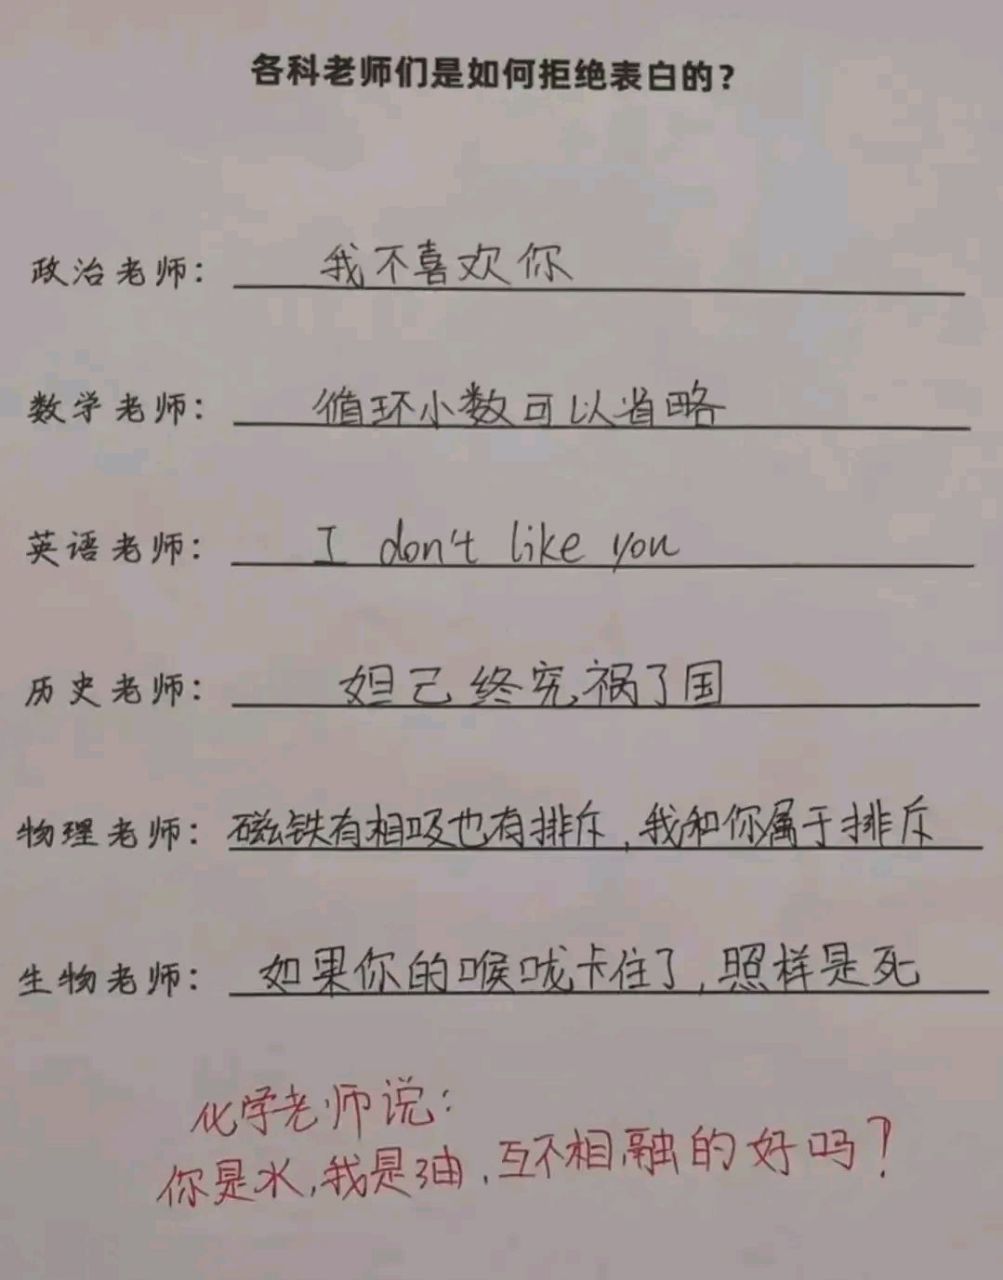 各科老师们是如何拒绝表白的？
政治老师：我不喜欢你
数学老师：循环小数可以省略
英语老师：I don't like you
历史老师：妲己终究祸了国
物理老师：磁铁有相吸也有排斥，我和你属于排斥
生物老师：如果你的喉咙卡住了，照样是死
化学老师说：
你是水，我是油，互不相融的好吗？